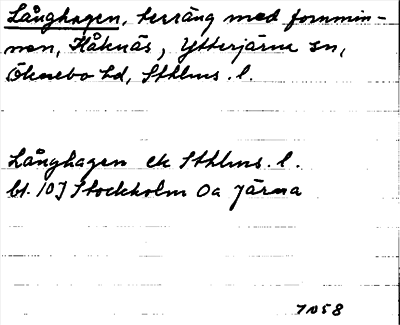 Långhagen, terräng med fornmin-
nen, Håknäs, Ytterjärna sn,
Öknebo hd, Sthlms. l.
Långhagen ek Sthlms. l.
bl. 10J Stockholm 0a Järna
1058